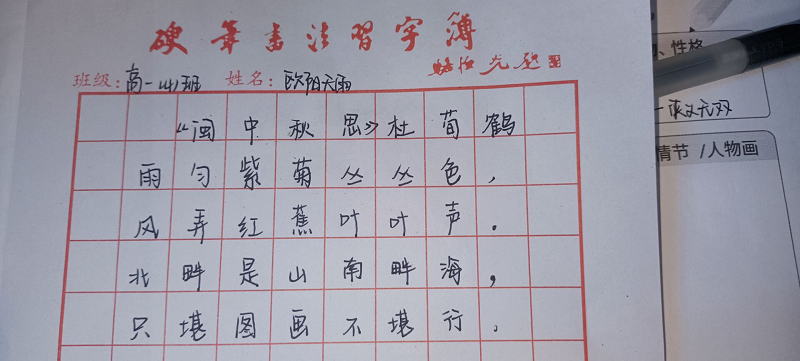 硬筆書法習字簿
班级：高一（4）班 姓名：欧阳天雨
《闽中秋思》杜荀鹤
雨匀紫菊丛丛色，
风弄红蕉叶叶声。
北畔是山南畔海，
只堪图画不堪行。
、性格
情节/人物画